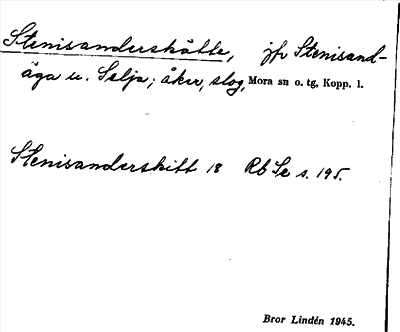 Stenisanderskätte, jfr Stenisand-
äga u. Selja; åker, slog, Mora sn o. tg, Kopp. l.
Stenisanderskitt 18 Rb Se s. 195.
Bror Lindén 1945.